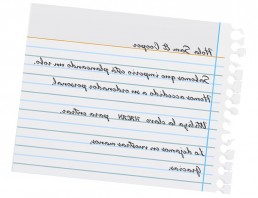 Hola Sam & Cooper
Sabemos que imperio está planeando un robo.
Hemos accedido a su ordenador personal
Utiliza la clave para entrar.
Lo dejamos en vuestras manos.
Gracias.